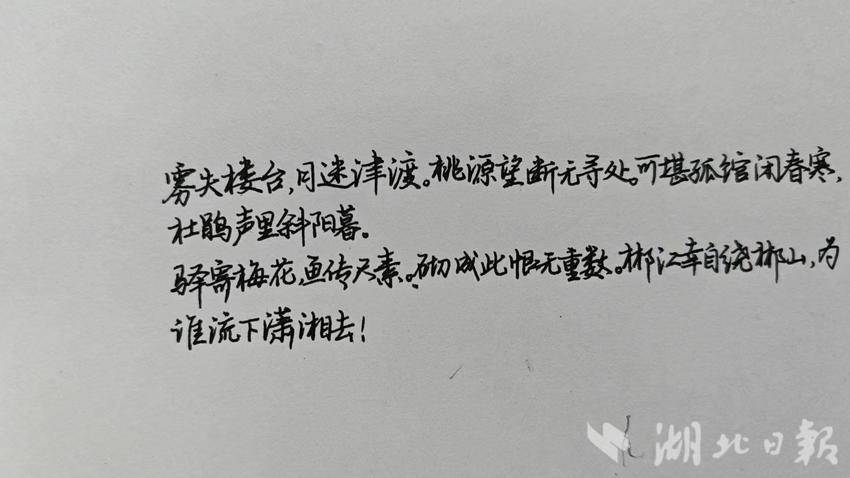 雾失楼台,月迷津渡。桃源望断无寻处。可堪孤馆闭春寒,
杜鹃声里斜阳暮。
驿寄梅花,鱼传尺素。砌成此恨无重数。郴江幸自绕郴山,为
谁流下潇湘去!
湖北日報